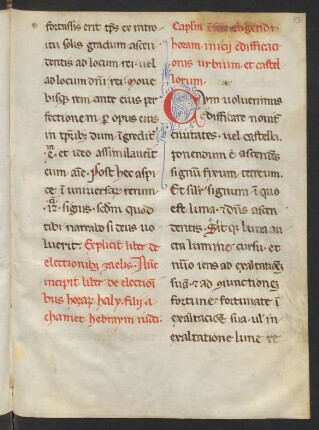 43
fortassis erit tp̄s ex intro
itu solis gradum ascen
dentis ad locum rei vel
ad locum dn̄i rei. Moue
bisq; rem ante eius per
fectionem. ꝑ opus eius
in tp̄ibꝰ dum īgredit̄
Et ideo assimilauerit
cum Post hec aspi
ce ī universar rerum
12. signis. scdm quod
tibi narrabo si deus uo
luerit. Explicit lib̄ de
electionibꝰ zaelis. Nūc
incipit lib̄ de electioī
bus horaꝝ haly. filii a
chamet hebraym iudi
Caplm īm eligendi
horam inicii edificati
onis urbium et castel
lorum.
Cum uoluerimus
edificare nouit
ciuitates. vel castella.
ponendum ē ascendēs
signum fixum. terreum.
Et silr̄ signum ī quo
est luna. ⁊ dn̄s ascen
dentis. Sit q̄ luna au
cta lumine cursu. et
nūo iens ad exaltationē
suā. ⁊ ad ꝯiunctionē
fortune fortunate ī
exaltacione sua. ul in
exaltatione lune re